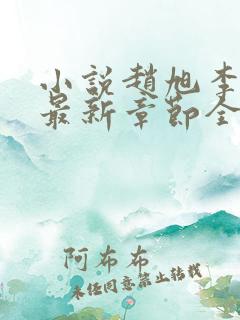 小説趙旭李
最新章節全
阿布布
未经同意禁止转载